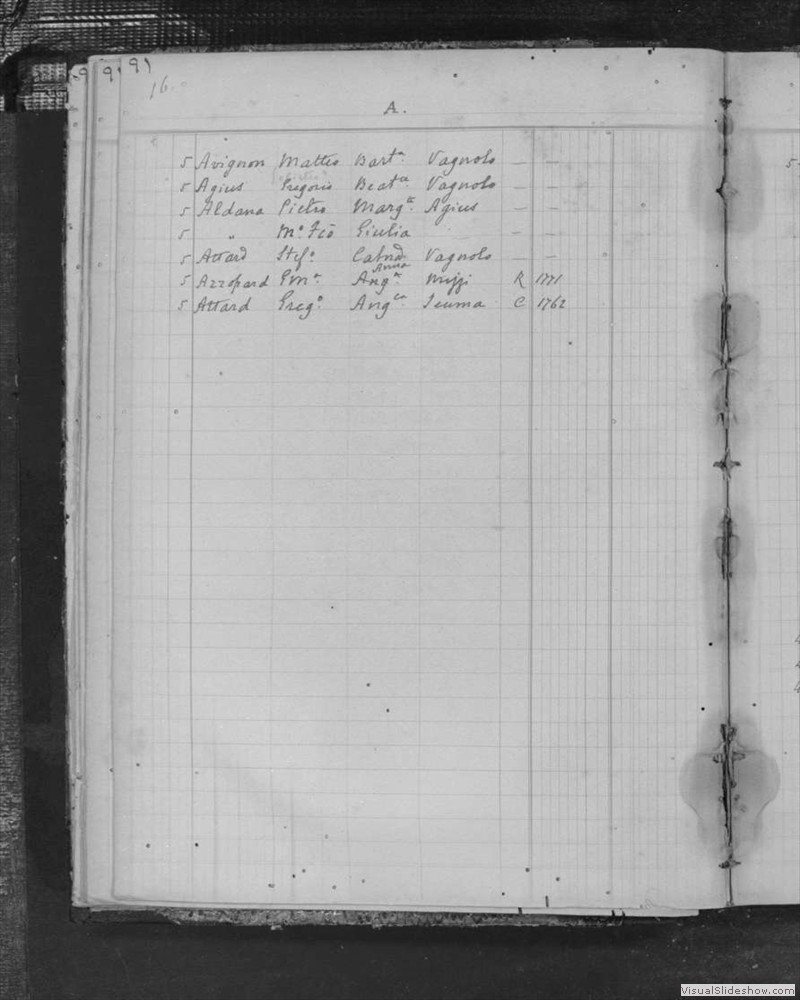 9 9) 9)
16
A.
5 Avignon Matteo Bart.a Vagnolo — —
5 Agius Gregorio Beat.ca Vagnolo — —
5 Aldana Pietro Marg.ta Agius — —
5 " M.o Fco Giulia — —
5 Attard Stef.o Catna Vagnolo — —
Anna
5 Azzopard Gm.a Ang.ca Mizzi R 1771
5 Attard Greg.o Ang.ca Seuma C 1762
5
4
4
4
VisualSlideshow.com